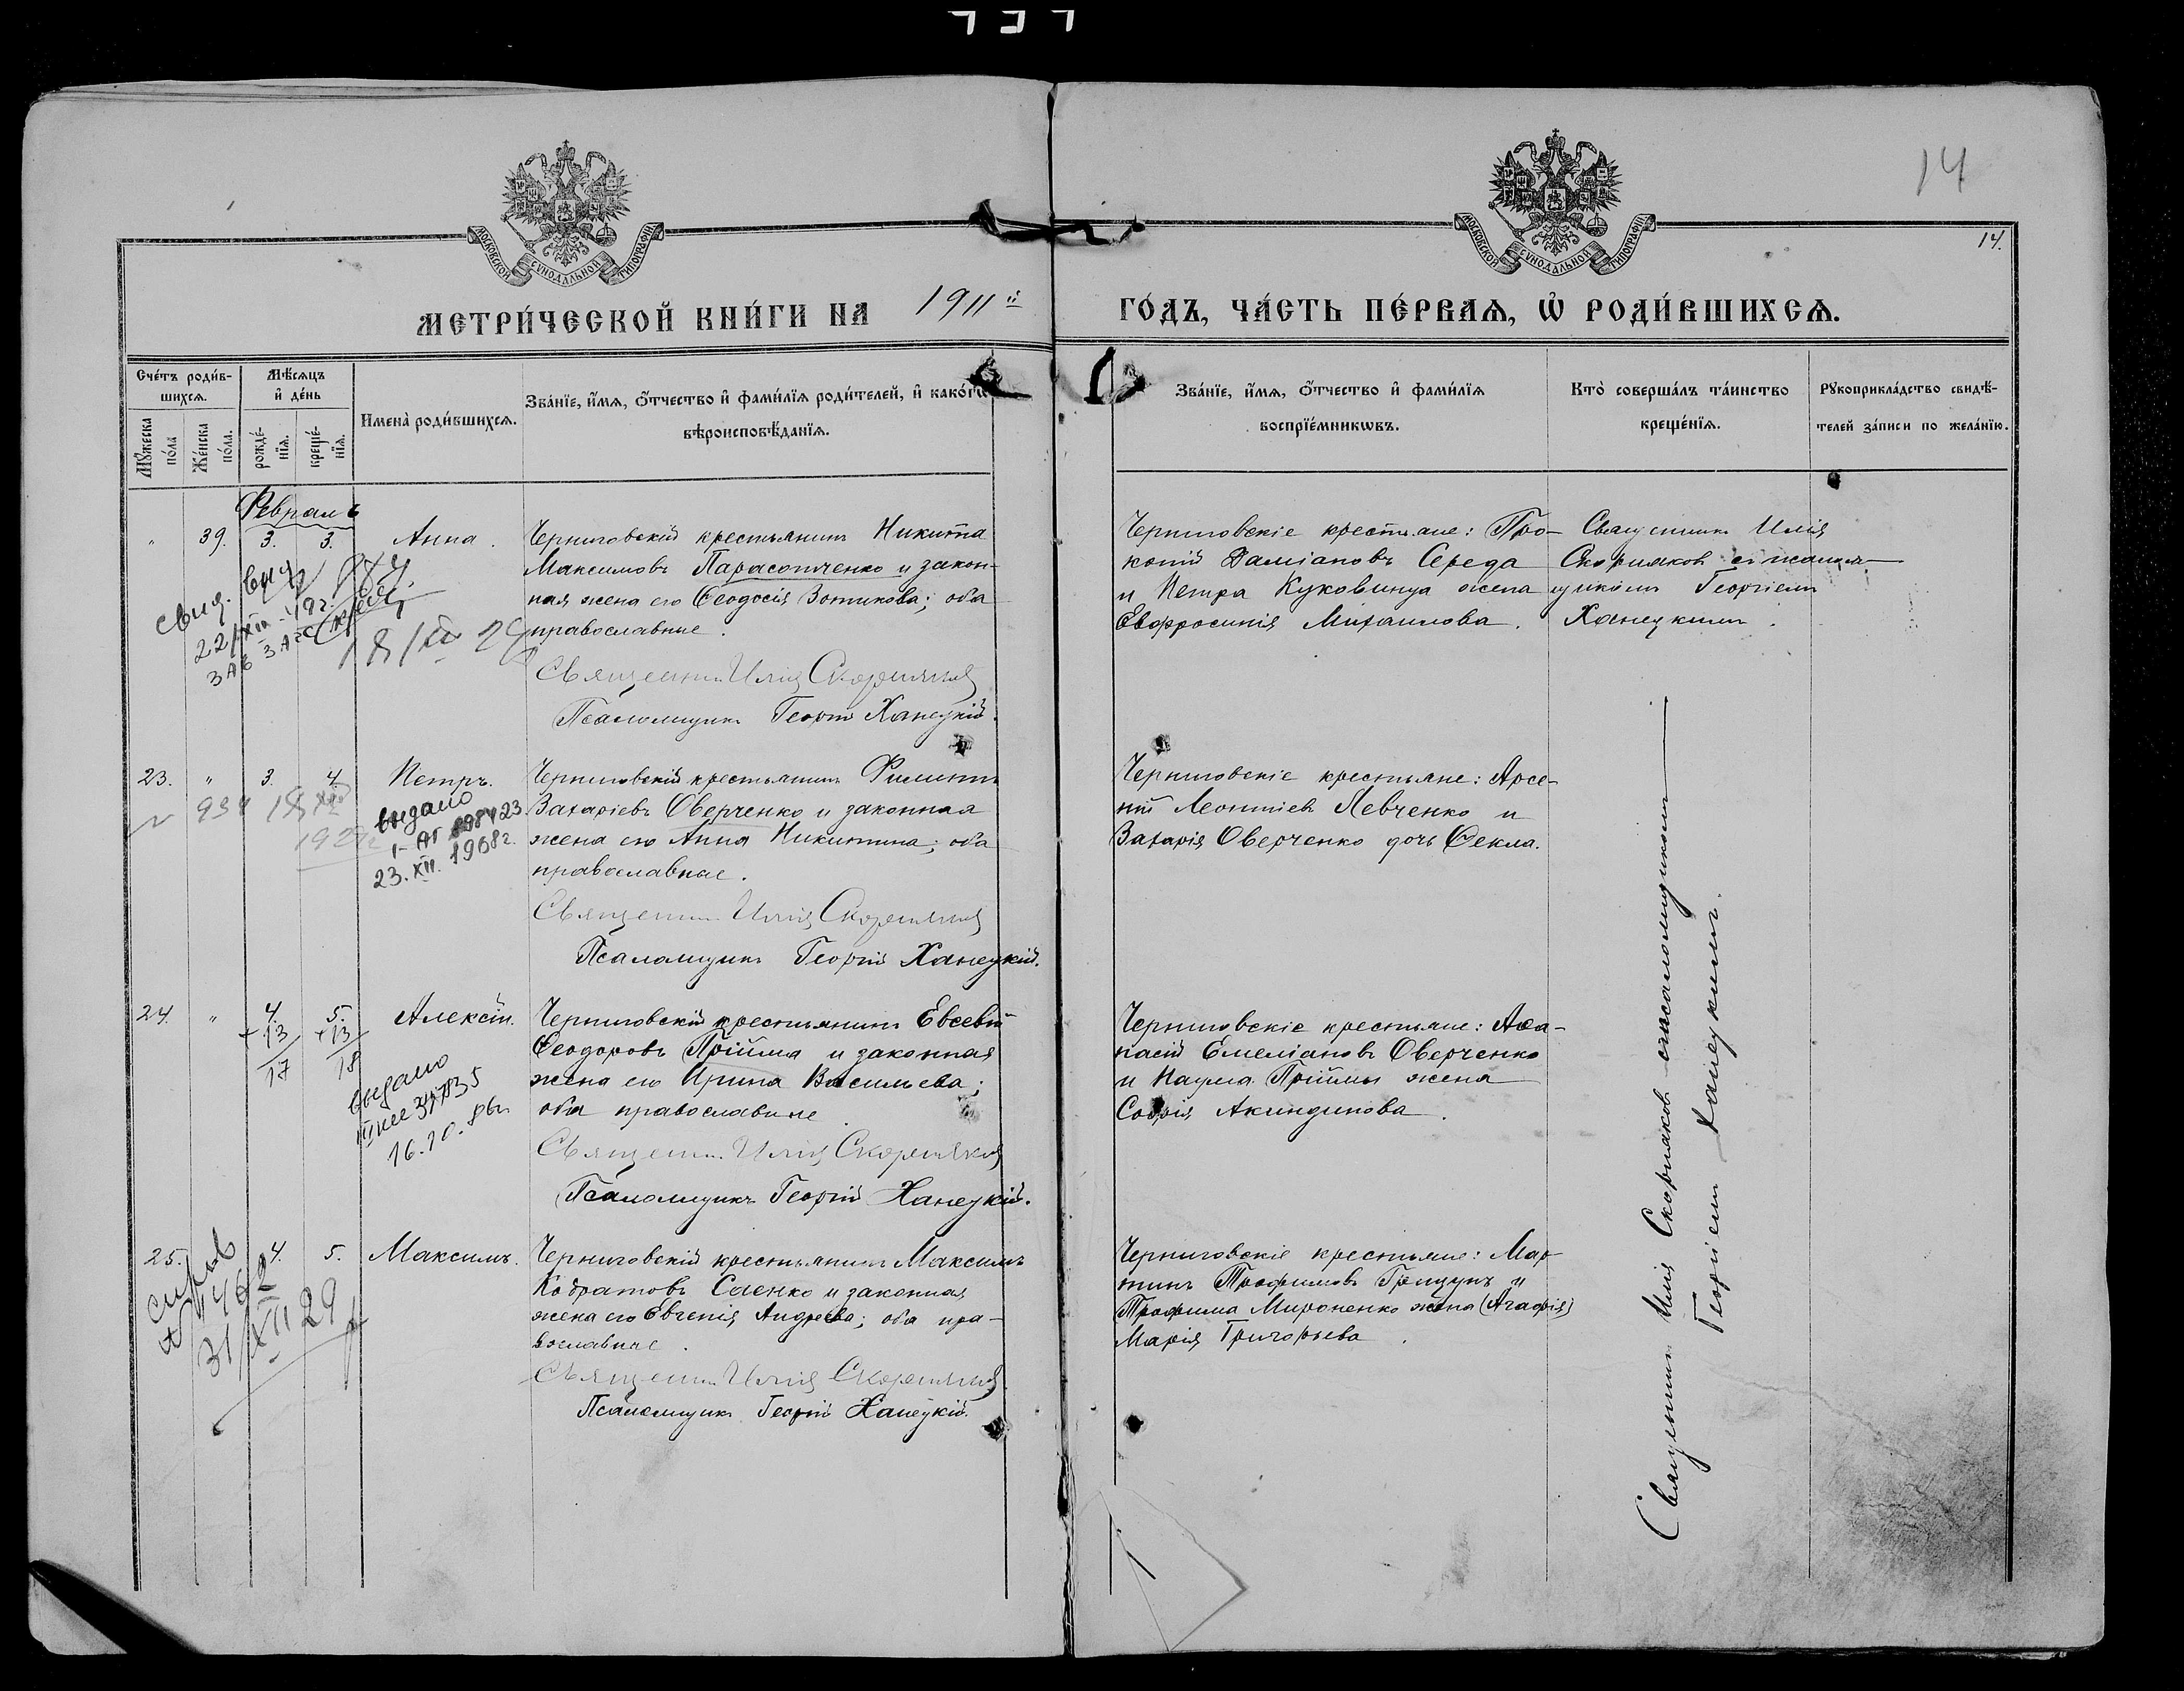 14
14.
МОСКОВСКОЙ СѴНОДАЛЬНОЙ ТИПОГРАФІИ
МОСКОВСКОЙ СѴНОДАЛЬНОЙ ТИПОГРАФІИ
МЕТРИ́ЧЕСКОЙ КНИ́ГИ НА 1911й ГО́ДЪ, ЧА́СТЬ ПЕ́РВАѦ, Ѡ҆ РОДИ́ВШИХСѦ.
Сче́тъ роди́вшихсѧ.
Мꙋ́жеска по́ла
Же́нска по́ла.
Мѣ́сѧцъ и҆ де́нь
рожде́нїѧ.
креще́нїѧ.
И҆мена̀ роди́вшихсѧ.
Зва́нїе, и҆́мѧ, ѻ҆́тчество и҆ фами́лїѧ роди́телей, и҆ како́гѡ
вѣроисповѣ́данїѧ.
Зва́нїе, и҆́мѧ, ѻ҆́тчество и҆ фами́лїѧ
воспрїе́мникѡвъ.
Кто̀ соверша́лъ та́инство
креще́нїѧ.
Рꙋкоприкла́дство свидѣ́-
телей за́писи по жела́нїю.
Февраль
" 39. 3. 3. Анна.
Черниговскій крестьянинъ Никита
Максимовъ Парасотченко и закон-
ная жена его Ѳеодосія Зотикова; оба
православные.
Священникъ Илія Скорняковъ
Псаломщикъ Георгій Ханецкій.
Черниговскіе крестьяне: Про-
копій Даміановъ Середа
и Петра Куковинца жена
Евфросинія Михаилова.
Священникъ Илія
Скорняковъ съ псалом-
щикомъ Георгіемъ
Ханецкимъ.
23. " 3. 4. Петръ.
выдано
23.XII.1968г.
Черниговскій крестьянинъ Филиппъ
Захаріевъ Оверченко и законная
жена его Анна Никитина; оба
православные.
Священникъ Илія Скорняковъ
Псаломщикъ Георгій Ханецкій.
Черниговскіе крестьяне: Арсе-
ній Леонтіевъ Левченко и
Захарія Оверченко дочь Ѳекла.
24. " 4. 5. Алексій.
+13 +13
17 18
выдано
16.10.86г.
Черниговскій крестьянинъ Евсевій
Ѳеодоровъ Прійма и законная
жена его Ирина Васильева;
оба православные.
Священникъ Илія Скорняковъ
Псаломщикъ Георгій Ханецкій.
Черниговскіе крестьяне: Аѳа-
насій Емеліановъ Оверченко
и Наума Пріймы жена
Софія Акиндинова.
25. 4. 5. Максимъ.
31/XII 29
Черниговскій крестьянинъ Максимъ
Кодратовъ Саенко и законная
жена его Евгенія Андреева; оба пра-
вославные.
Священникъ Илія Скорняковъ
Псаломщикъ Георгій Ханецкій.
Черниговскіе крестьяне: Мар-
тинъ Трофимовъ Грицунъ и
Трофима Мироненко жена (Агафія)
Марія Григорьева.
Священникъ Илія Скорняковъ съ псаломщикомъ
Георгіемъ Ханецкимъ.